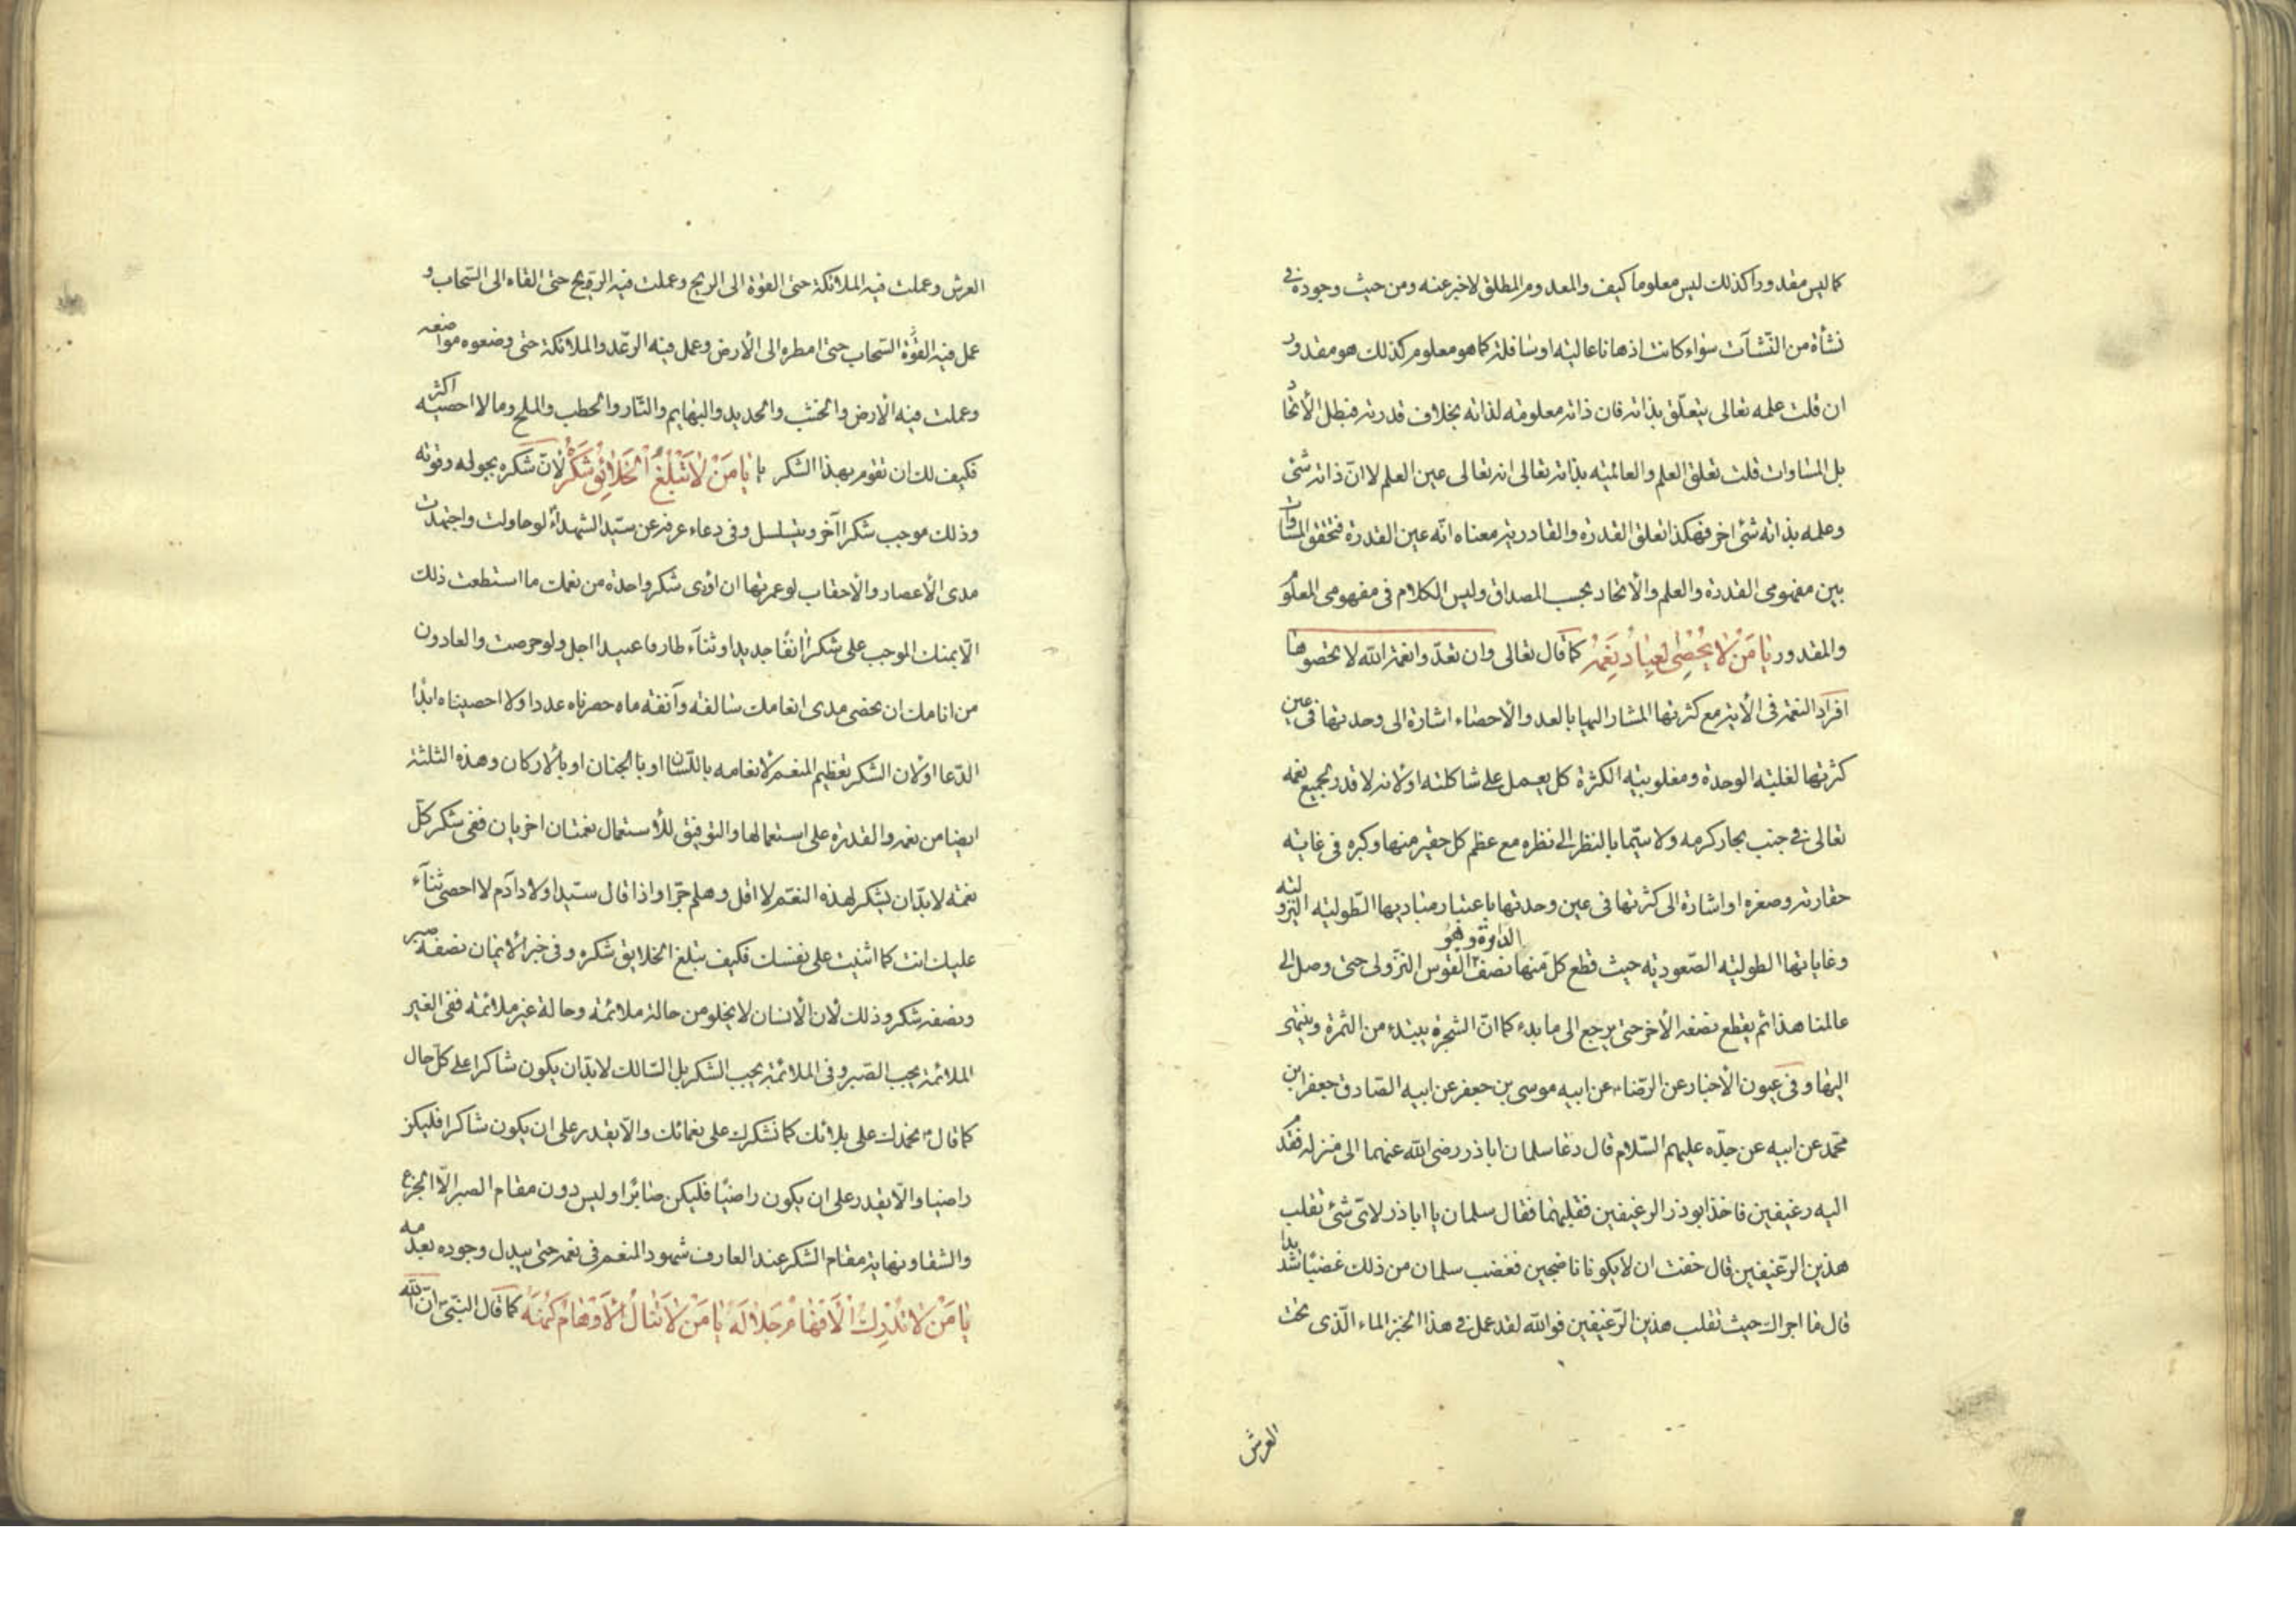 كما ليس مقدورا كذلك ليس معلوما كيف والمعدوم المطلق لاخبر عنه ومن حيث وجوده في
نشأة من النشآت سواء كانت اذهانا عاليه او سافلة كما هو معلوم كذلك هو مقدور
ان قلت علمه تعالى يتعلّق بذاته فان ذاته معلومة لذاته بخلاف قدرته فبطل الأتحاد
بل المساوات قلت تعلق العلم والعالميه بذاته تعالى انه تعالى عين العلم لا انّ ذاته شئ
وعلمه بذاته شئ اخر فهكذا تعلق القدرة والقادرية معناه انّه عين القدرة فتحقق المساوات
بين مفهومى القدرة والعلم والأتحاد بحسب المصداق وليس الكلام فى مفهومى المعلوم
والمقدور يا مَنْ لا يُحْصى لعِبادُ نِعَمَهُ كما قال تعالى وان تعدّوا نعمة الله لا تحصوها
افراد النعمة فى الأية مع كثرتها المشار اليها بالعد والأحصاء اشارة الى وحدتها فى عين
كثرتها لغلبة الوحدة ومغلوبية الكثرة كل يعمل على شاكلته او لانه لا قدر لجميع نعمه
تعالى في جنب بحار كرمه ولا سيّما بالنظر الى نظره مع عظم كل حقير منها وكبره فى غاية
حقارته وصغره او اشارة الى كثرتها فى عين وحدتها باعتبار مباديها الطولية النزولية
وغاياتها الطولية الصّعودية حيث قطع كلّ منها نصف الدائرة وهو القوس النزولى حتى وصل الى
عالمنا هذا ثم يقطع نصفه الأخر حتى يرجع الى ما بدء كما انّ الشجرة يبتدء من الثمرة وينتهى
اليها وفى عيون الأخبار عن الرضاء عن ابيه موسى بن جعفر عن ابيه الصّادق جعفر ابن
محّمد عن ابيه عن جدّه عليهم السّلام قال دعا سلمان اباذر رضى الله عنهما الى منزله فقدّم
اليه رغيفين فاخذ ابوذر الرغيفين فقلبهما فقال سلمان يا اباذر لاىّ شئ تقلب
هذين الرّغيفين قال خفت ان لا يكونا ناضجين فغضب سلمان من ذلك غضبًا شديدا
قال ما اجراك حيث تقلب هذين الرّغيفين فوالله لقد عمل في هذا الخبز الماء الّذى تحت
العرش
العرش وعملت فيه الملائكة حتى القوة الى الريح وعملت فيه الريح حتى القاه الى السّحاب و
عمل فيه القوّة السّحاب حتى امطره الى الأرض وعمل فيه الرّعد والملائكة حتى وضعوه مواضعه
وعملت فيه الأرض والخشب والحديد والبهايم والنّار والحطب والملح وما لا احصيه اكثر
فكيف لك ان تقوم بهذا الشكر يا مَنْ لا تَبْلُغُ الْخَلائِقُ شُكْرَهُ لانّ شكره بحوله وقوته
وذلك موجب شكرا آخر ويتسلسل وفى دعاء عرفه عن سيّد الشهداء لو حاولت واجتهدت
مدى الأعصار والأحقاب لو عمرتها ان اؤدى شكر واحدة من نعمك ما استطعت ذلك
الّا بمنك الموجب على شكرًا انفًا جديدا وثناء طارفا عتيدا اجل ولو حرصت والعادون
من انامك ان نحصى مدى انعامك سالفة وآنفة ما حصرناه عددا ولا احصيناه ابدًا
الدّعا اولان الشكر تعظيم المنعم لأنعامه باللّسان او بالجنان او بالأركان وهذه الثلثة
ايضا من نعمه والقدرة على استعمالها والتوفيق للأستعمال نعمتان اخريان ففى شكر كلّ
نعمة لا بدّ ان يشكر لهذه النعم لا اقل وهلم جرّا واذا قال سيّد اولاد آدم لا احصى ثناء
عليك انت كما اثنيت على نفسك فكيف تبلغ الخلايق شكره وفى خبر الأيمان نصفه صبر
ونصفه شكر وذلك لأن الأنسان لا يخلو من حالة ملائمة وحالة غير ملائمة ففى الغير
الملائمة يجب الصّبر وفى الملائمة يجب الشكر بل السّالك لا بدّ ان يكون شاكرا على كلّ حال
كما قال نحمدك على بلائك كما نشكرك على نعمائك والّا يقدر على ان يكون شاكرا فليكن
راضيا والّا يقدر على ان يكون راضيًا فليكن صابرًا وليس دون مقام الصبر الّا الجزع
والشقا ونهاية مقام الشكر عند العارف شهود المنعم فى نعمه حتى يبدل وجوده بعدمه
يا مَنْ لا تُدْرِكُ الْأَفْهامُ جَلالَهُ يا مَنْ لا تَنالُ الأَوْهامُ كُنْهَهُ كما قال النبىّ انّ الله